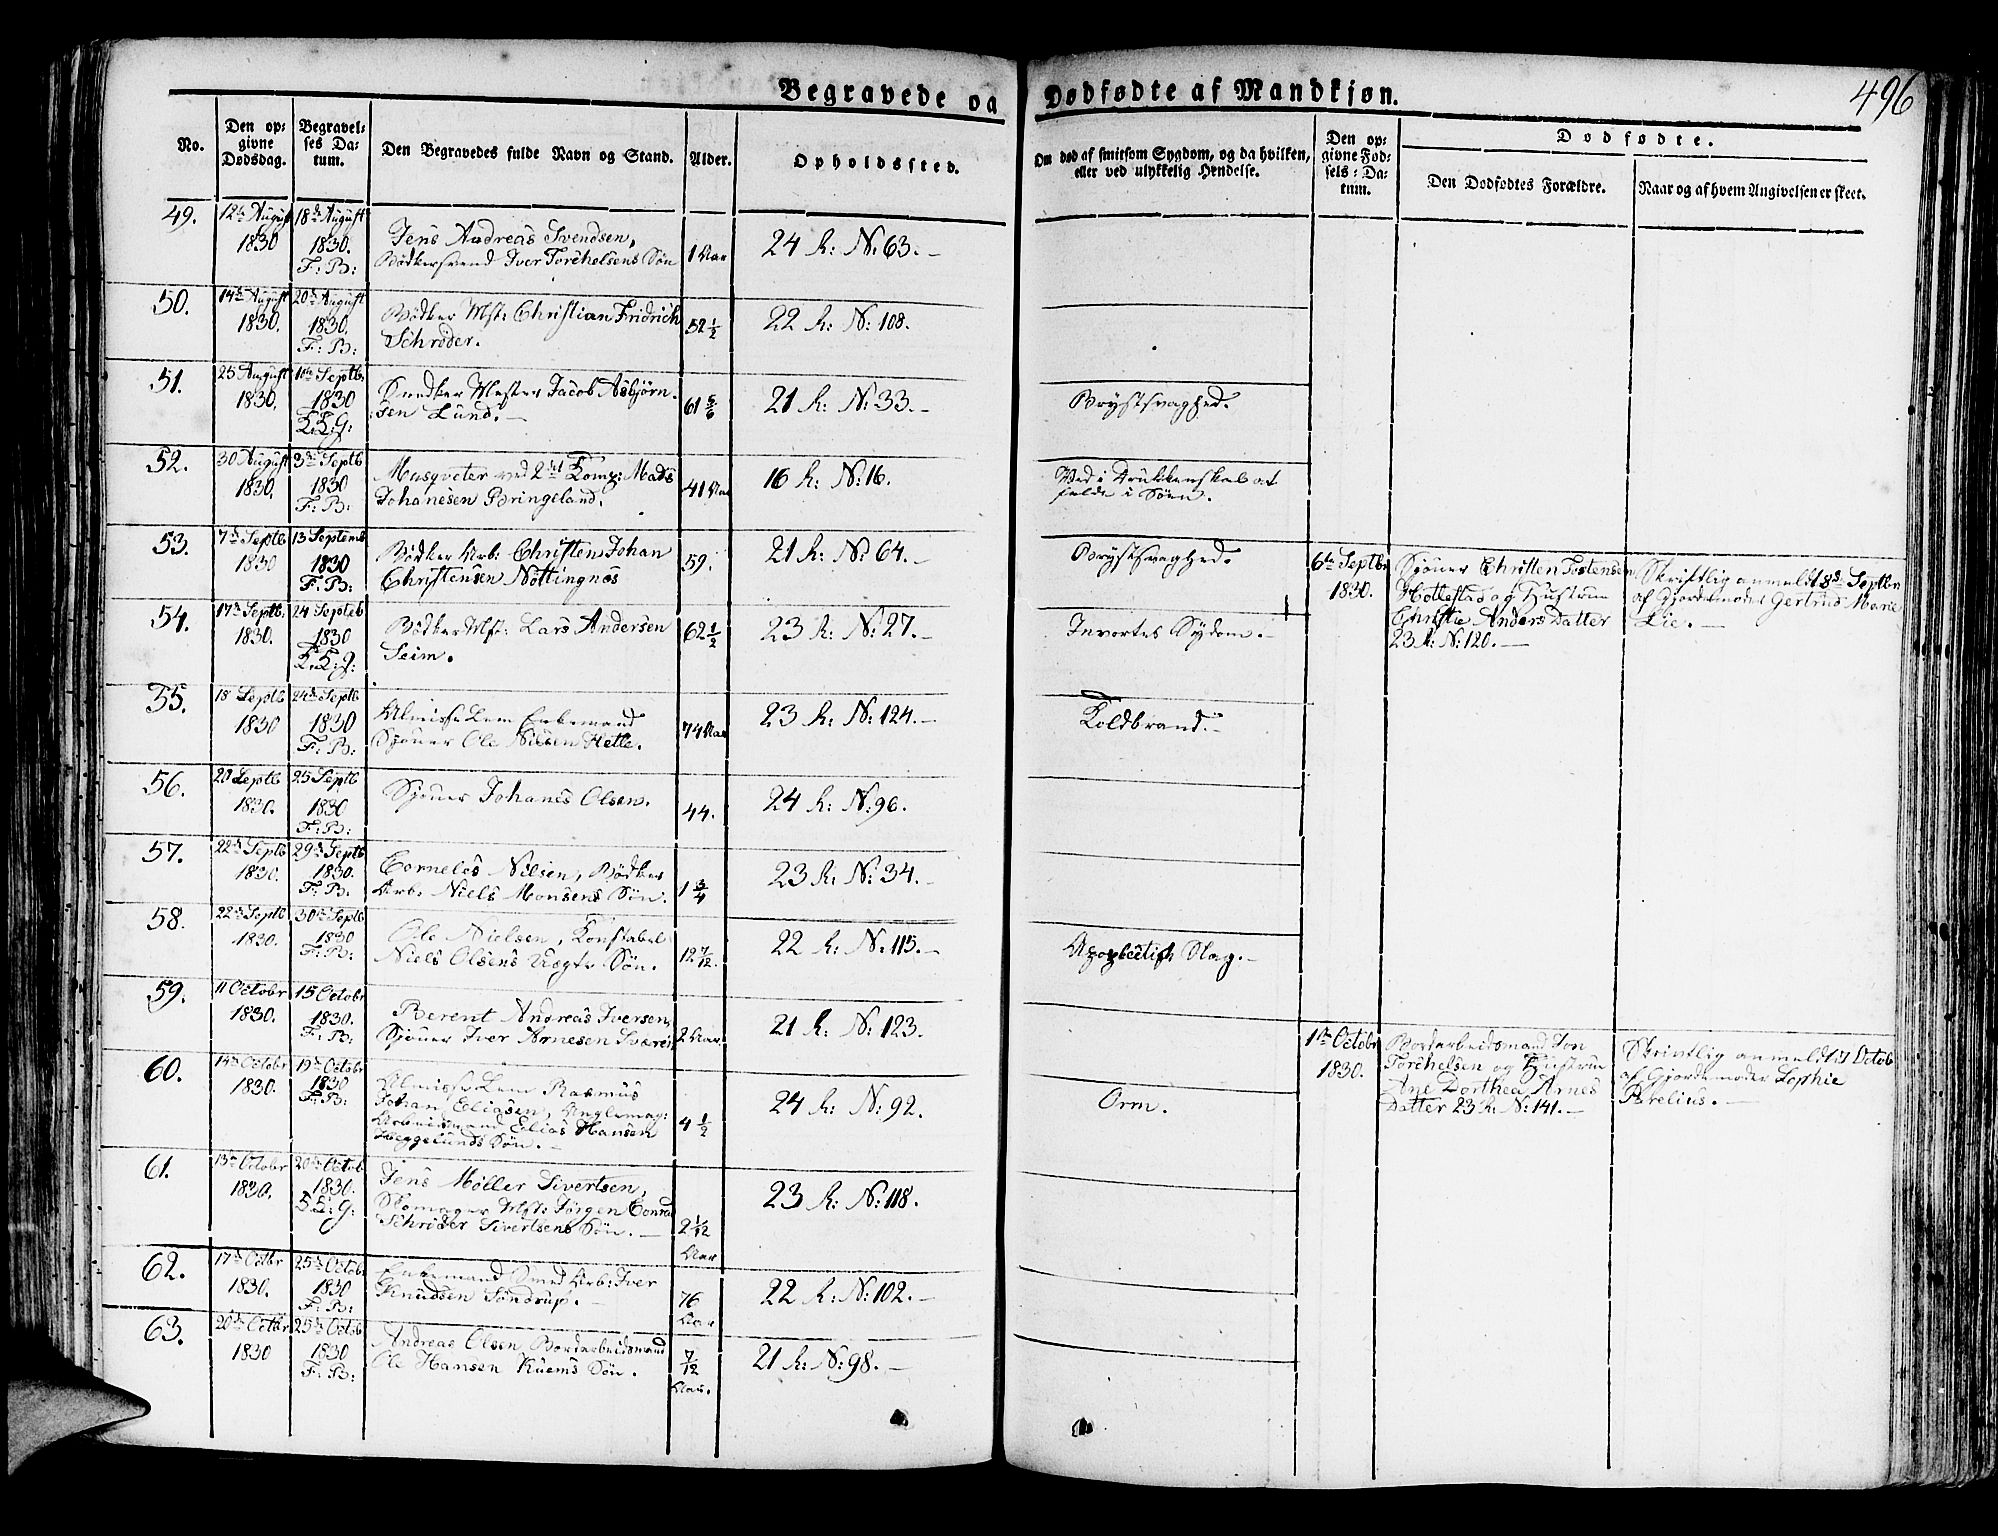 Begravede og Dødfødte af Mandkjøn.
496
No.
Den op-
givne
Dødsdag.
Begravel-
ses Da-
tum.
Den Begravedes fulde Navn og Stand.
Alder.
Opholdssted.
Om død af smitsom Sygdom, og da hvilken,
eller ved ulykkelig Hendelse.
Den op-
givne Fød-
sels-Da-
tum.
Dødfødte.
Den Dødfødtes Forældre.
Naar og af hvem Angivelsen er skeet.
49.
12te August
1830
18de August
1830.
F: B:
Jens Andreas Svendsen,
Bødkersvend Iver Torchelsens Søn
1 Aar
24 R: N: 63.-
50.
14de August
1830.
20de August
1830.
F: B:
Bødker Mst: Christian Fridrich
Schrøder.
52 1/2
22 R: N: 108.
51.
25 August
1830.
1ste Septb.
1830
Mester Jacob Asbjørn-
sen Lund.-
61 5/6
21 R: N: 33.-
Brystsvaghed.
52.
30 August
1830.
3de Septb
1830
F: B:
Musqveter ved 2det Komp: Mads
Johanesen Bringeland.
41 Aar
16 R: N: 16.
Ved i Drukkenskab at
falde i Søen.
53.
7de Septb
1830
13 Septemb
1830
F: B:
Bødker Arb: Christen Johan
Christensen Nøttingnøs
59.
21 R: N: 64.-
Brystsvaghed.
6te Septbr
1830.
Sjøuer Christen Tostensen
Hollestad og Hustrue
Christie Anders Datter
23 R: N: 120.-
Skriftlig anmeldt 8de Septbr
af Gjordemoder Gertrud Marie
Lie.-
54.
17de Septb.
1830.
24 Septeb
1830
Bødker Mst: Lars Andersen
Seim.
62 1/2
23 R: N: 27.-
Invortes Sydom.-
55.
18 Septb
1830
24de Septb
1830
F: B:
Almisse Lem Enkemand
Sjouer Ole Nilsen Hetle.
74 Aar
23 R: N: 124.-
Koldbrand.-
56.
20 Septb
1830.
25 Septb
1830
F: B:
Sjouer Johanes Olsen.
44.
24 R: N: 96.
57.
22de Septb
1830.
29de Septb
1830.
F: B:
Corneles Nilsen, Bødker
Arb: Niels Monsens Søn.
1 3/4
23 R: N: 34.-
58.
22de Septb
1830.
30te Septb
1830
F: B:
Ole Nielsen, Konstabel
Niels Olsens Søn.
12 7/12.
22 R: N: 115.-
Apoplectisk Slag.-
59.
11 Octobr
1830.
15 Octobr
1830.
F: B:
Berent Andreas Iversen,
Sjouer Iver Arnesen
2 Aar.
21 R: N: 123.
1ste Octobr
1830.
Bordarbeidsmand Jon
Torchelsen og Hustrue
Ane Dorthea Arnes
Datter 23 R: N: 141.-
Skriftlig anmeldt Octob
af Gjordemoder Sophie
Brelius.-
60.
14de Octobr
1830.
19de Octobr
1830
F: B:
Almisse Lem Rasmus
Johan Eliasen,
Arbeidsmand Elias Hansen
Heggelunds Søn.-
4 1/2
24 R: N: 92.
Orm.
61.
13de Octobr
1830.
20de Octob
1830.
Jens Møller Sivertsen,
Skomager Mst: Jørgen Conrad
Schrøder Sivertsens Søn.-
2 1/12
Aar
23 R: N: 118.
62.
17de Octbr
1830.
25de Octob
1830
F: B:
Enkemand Smed Arb: Iver
Knudsen Søndrup.-
76
Aar
22 R: N: 102.-
63.
20de Octbr
1830
25de Octob
1830
F: B:
Andreas Olsen Bordarbeidsmand
Ole Hansen Kuems Søn.
7/12
Aar.
21 R: N: 98.-